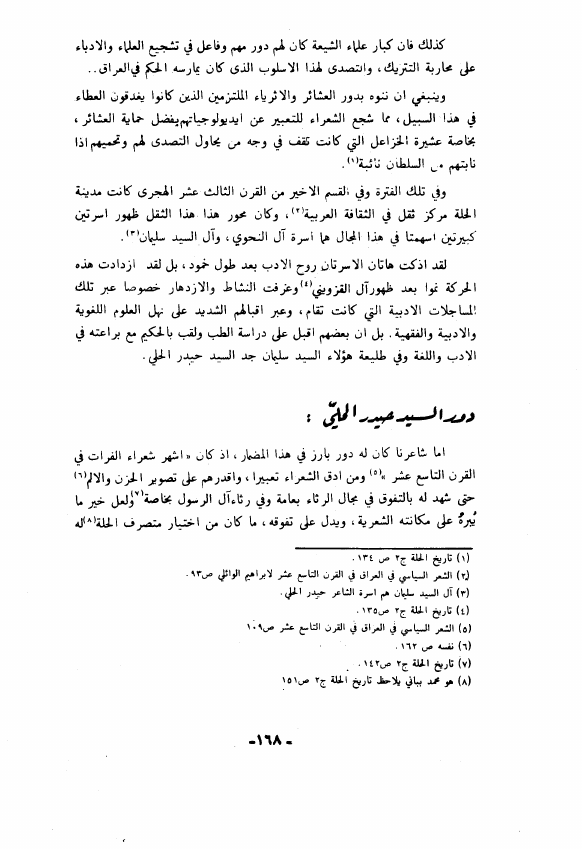 كذلك فان كبار علماء الشيعة كان لهم دور مهم وفاعل في تشجيع العلماء والادباء
على محاربة التتريك، والتصدى لهذا الاسلوب الذى كان يمارسه الحكم في العراق..
وينبغي ان ننوه بدور العشائر والاثرياء الملتزمين الذين كانوا يغدقون العطاء
في هذا السبيل، مما شجع الشعراء للتعبير عن ايديولوجياتهم بفضل حماية العشائر،
بخاصة عشيرة الخزاعل التي كانت تقف في وجه من يحاول التصدى لهم وتحميهم اذا
نابتهم من السلطان نائبة(١).
وفي تلك الفترة وفي القسم الاخير من القرن الثالث عشر الهجرى كانت مدينة
الحلة مركز ثقل في الثقافة العربية(٢)، وكان محور هذا هذا الثقل ظهور اسرتين
كبيرتين اسهمتا في هذا المجال هما اسرة آل النحوي، وآل السيد سليمان(٣).
لقد اذكت هاتان الاسرتان روح الادب بعد طول خمود، بل لقد ازدادت هذه
الحركة نموا بعد ظهور آل القزويني(٤) وعرفت النشاط والازدهار خصوصا عبر تلك
المساجلات الادبية التي كانت تقام، وعبر اقبالهم الشديد على نهل العلوم اللغوية
والادبية والفقهية. بل ان بعضهم اقبل على دراسة الطب ولقب بالحكيم مع براعته في
الادب واللغة وفي طليعة هؤلاء السيد سليمان جد السيد حيدر الحلي.
دور السيد حيدر الحليّ :
اما شاعرنا كان له دور بارز في هذا المضمار، اذ كان «اشهر شعراء الفرات في
القرن التاسع عشر»(٥) ومن ادق الشعراء تعبيرا، واقدرهم على تصوير الحزن والالم(٦)
حتى شهد له بالتفوق في مجال الرثاء بعامة وفي رثاء آل الرسول بخاصة(٧) ولعل خير ما
على مكانته الشعرية، ويدل على تفوقه، ما كان من اختيار متصرف الحلة(٨) له
(١) تاريخ الحلة ج٢ ص ١٣٤.
(٢) الشعر السياسي في العراق في القرن التاسع عشر لابراهيم الوائلي ص٩٣.
(٣) آل السيد سليمان هم اسرة الشاعر حيدر الحلي.
(٤) تاريخ الحلة ج٢ ص١٣٥.
(٥) الشعر السياسي في العراق في القرن التاسع عشر ص١٠٩
(٦) نفسه ص ١٦٢.
(٧) تاريخ الحلة ج٢ ص١٤٢.
(٨) هو محمد بباني يلاحظ تاريخ الحلة ج٢ ص١٥١
-١٦٨-